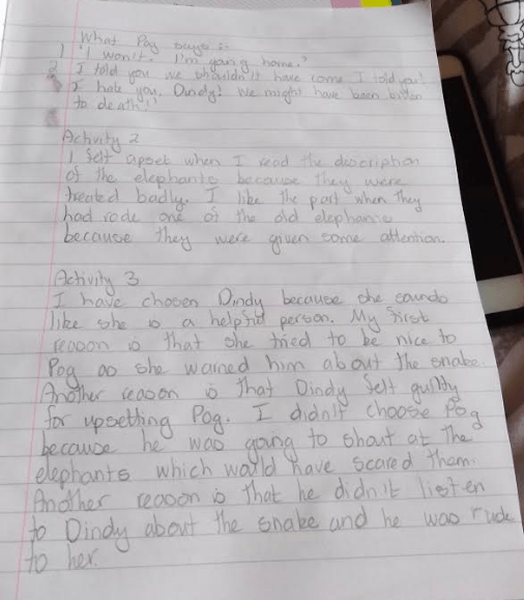 What Pog says:
1 "I won't. I'm going home."
2 I told you we shouldn't have come I told you!
I hate you, Dindy! We might have been biten
to death!"
Activity 2
I felt upset when I read the description
of the elephants because they were
treated badly. I like the part when they
had rode one of the old elephants
because they were given some attention.
Activity 3
I have chosen Dindy because she sounds
like she is a helpful person. My first
reason is that she tried to be nice to
Pog as she warned him about the snake.
Another reason is that Dindy felt guilty
for upsetting Pog. I didn't choose Pog
because he was going to shout at the
elephants which would have scared them.
Another reason is that he didn't listen
to Dindy about the snake and he was rude
to her.